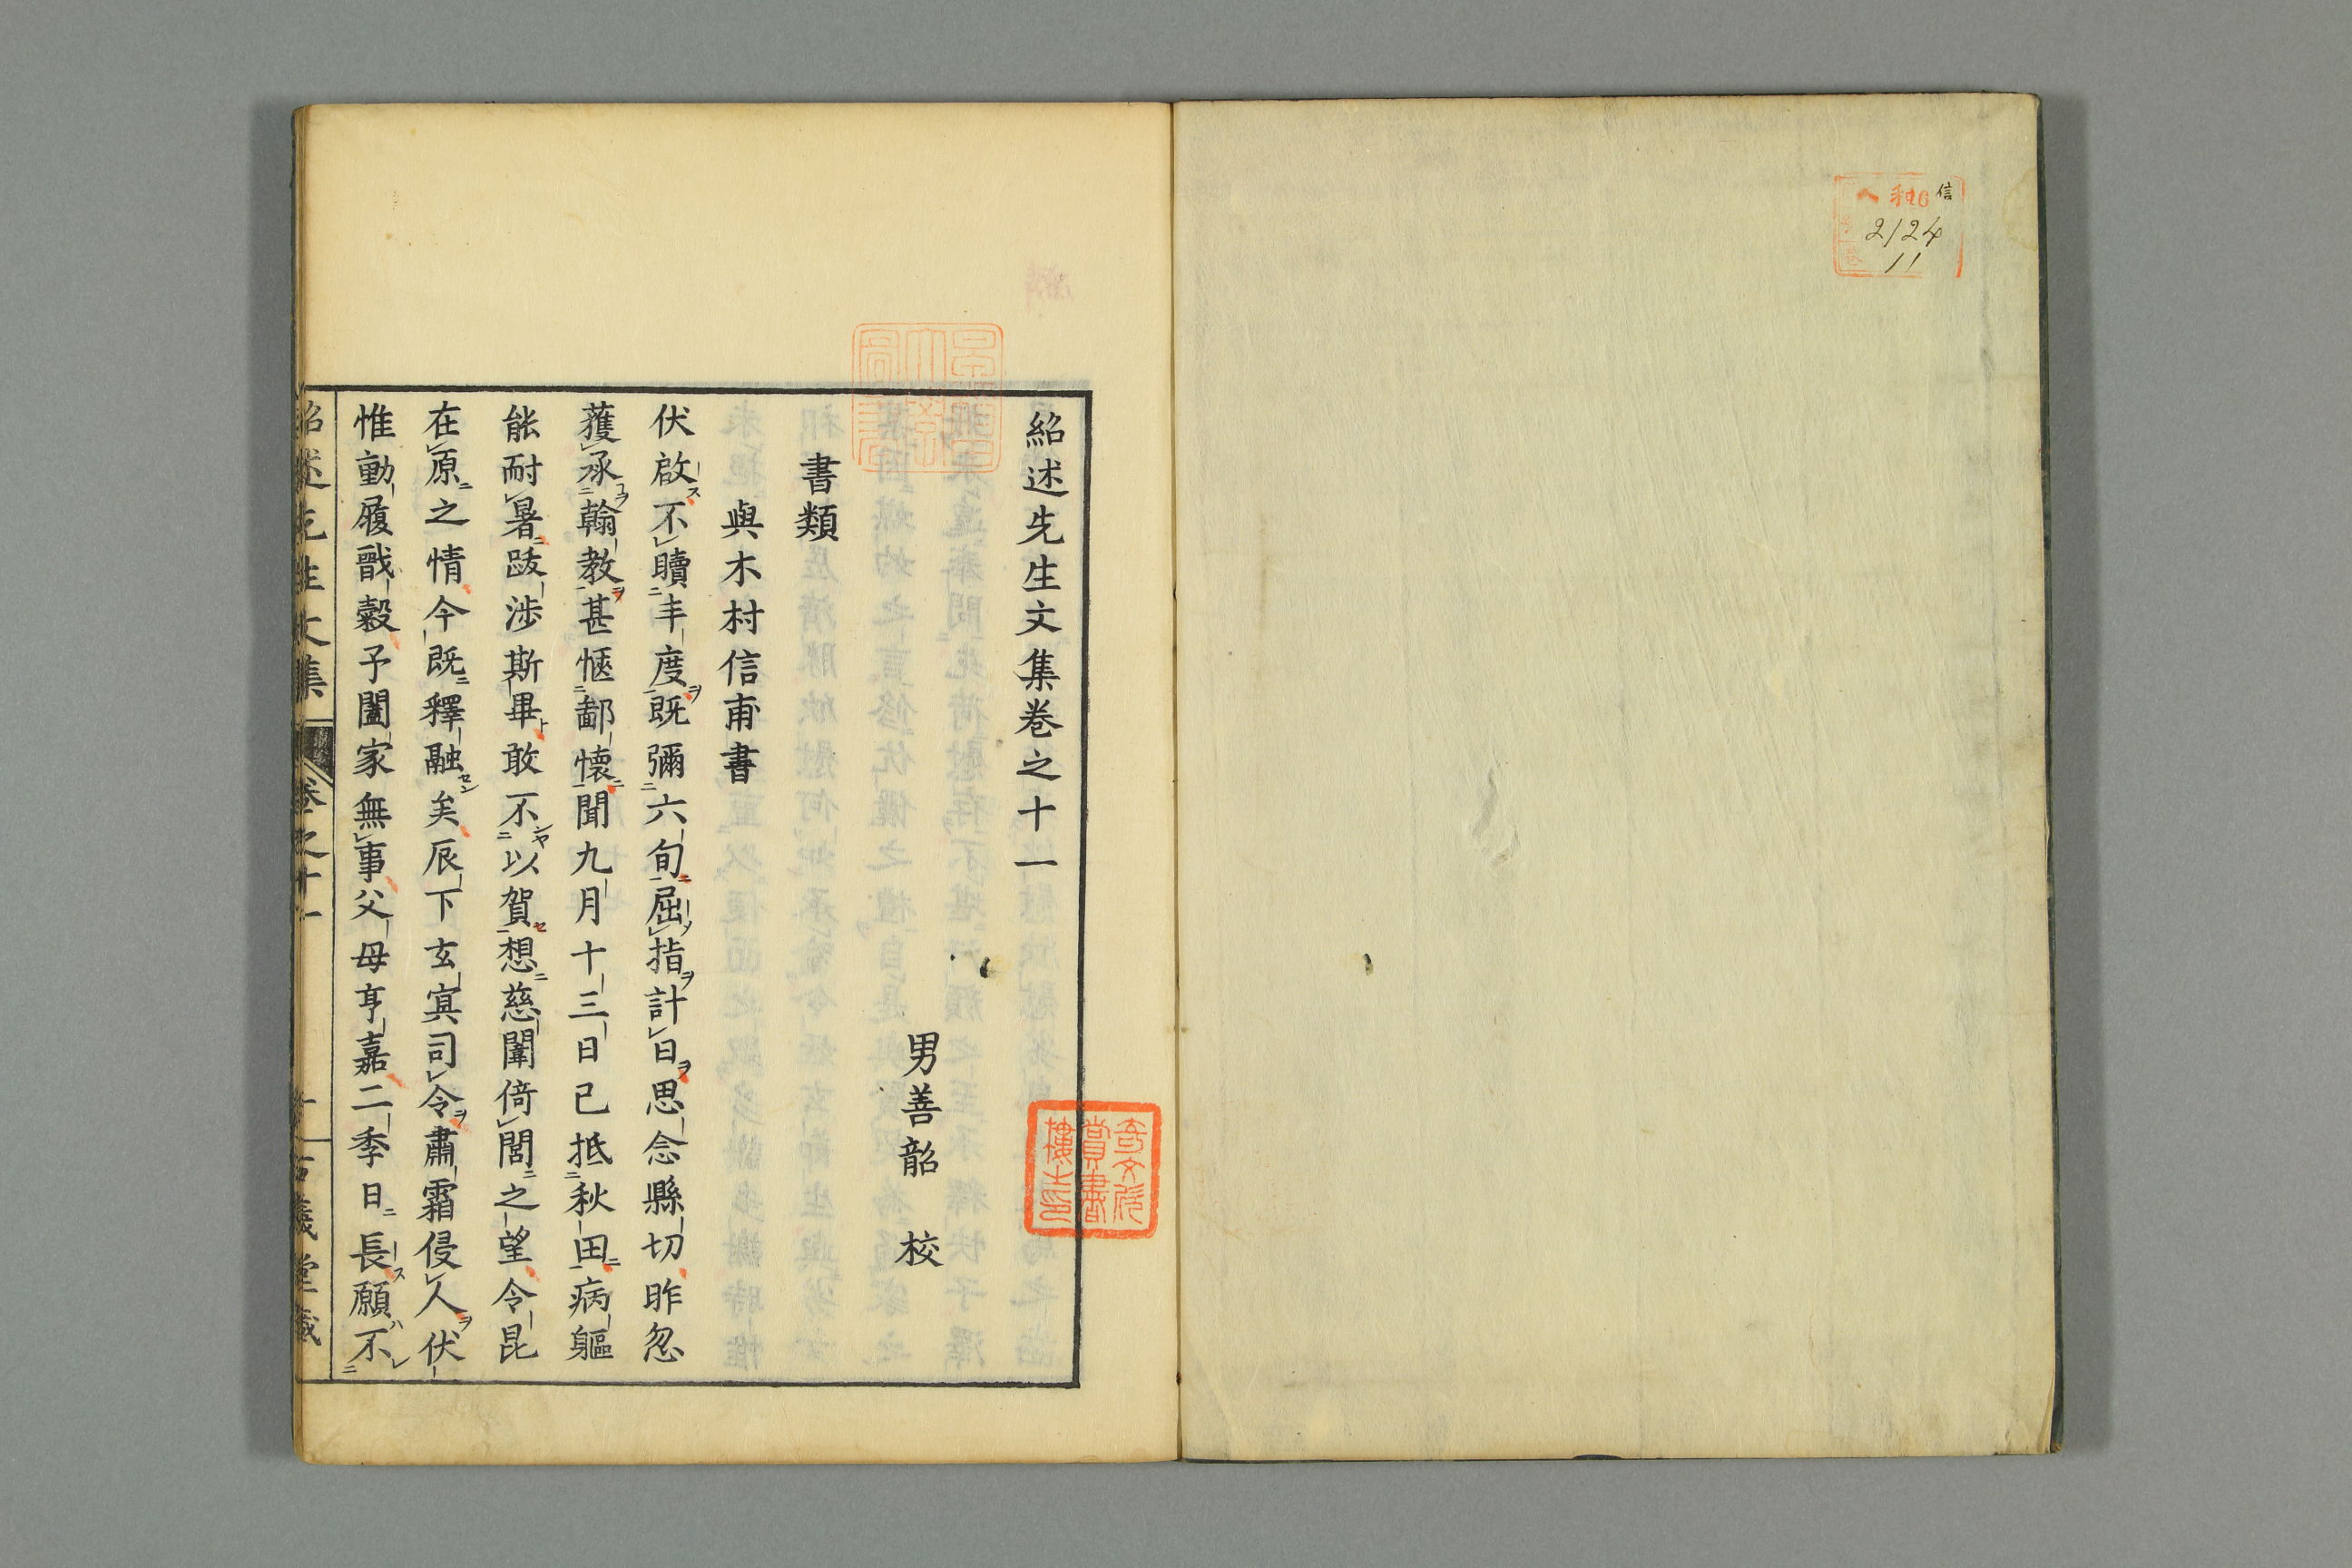 信
和6
2124
11
紹述先生文集卷之十一
男善韶 校
書類
與木村信甫書
伏啟不瞔丰度既彌六旬屈指計日思念縣切昨忽
獲承翰教甚愜鄙懷聞九月十三日已抵秋田病軀
能耐暑跋涉斯畢敢不以賀想慈闈倚閭之望令昆
在原之情今既釋融矣辰下玄冥司令肅霜侵人伏
惟動履戩穀予闔家無事父母亨嘉二季日長願不
紹述先生文集 卷之十一 一 古義堂藏
奇文欣
賞書
樓主印